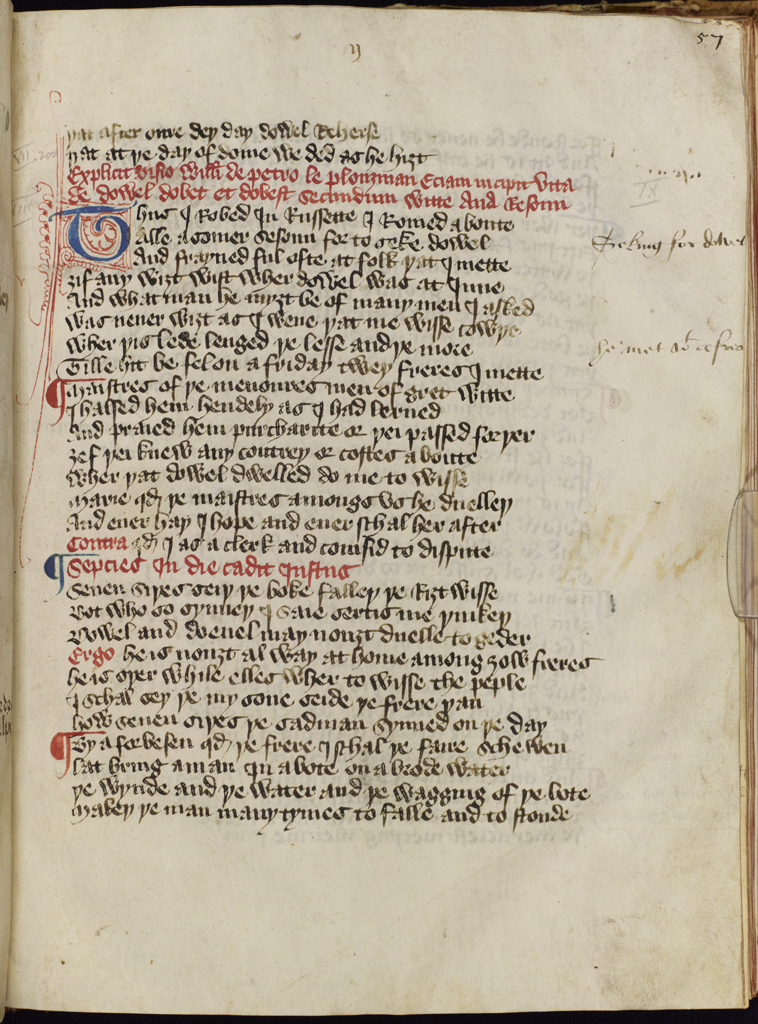 57
þat after oure deþ day dowel Reherse
þat at þe day of dome we ded as he hiȝt
Explicit visio Willi de petro le plouȝman Eciam incipit vita
de dowel dobet et dobest secundum witte And Resoun
Thus I Robed In Russette I Romed aboute
Alle a somer sesoun for to seke dowel
And frayned ful ofte at folk þat I mette
ȝif any wiȝt wist wher dowel was at Inne
And what man he myȝt be of many men I asked
was neuer wiȝt as I wene þat me wisse cowþe
wher þis lede lenged þe lesse and þe more
Tille hit be fel on a friday twey freres I mette
Maistres of þe menoures men of gret witte
I halsed hem hendely as I had lerned
And praied hem pur charite or þei passed forþer
ȝef þei knew any contrey or costes aboute
wher þat dowel dwelled do me to wisse
Marie qd þe maistres amongs vs he duelleþ
And euer haþ I hope and euer schal her after
Contra qd I as a clerk and comsid to dispute
Sepcies In die cadit Iustus
Seuen siþes seiþ þe boke falleþ þe Riȝtwisse
Bot who so synneþ I saie certis me þinkeþ
Dowel and do euel may nouȝt duelle to geder
Ergo he is nouȝt al way at home among ȝow freres
he is oþer while elles wher to wisse the peple
I schal sey þe my sone seide þe frere þan
how seuen siþes þe sadman synned on þe day
By a forbesen qd þe frere I schal þe faire schewen
lat bring a man In a bote on a brode water
þe wynde and þe water and þe wagging of þe bote
Makeþ þe man many tymes to falle and to stonde
Seking for dowel
he met